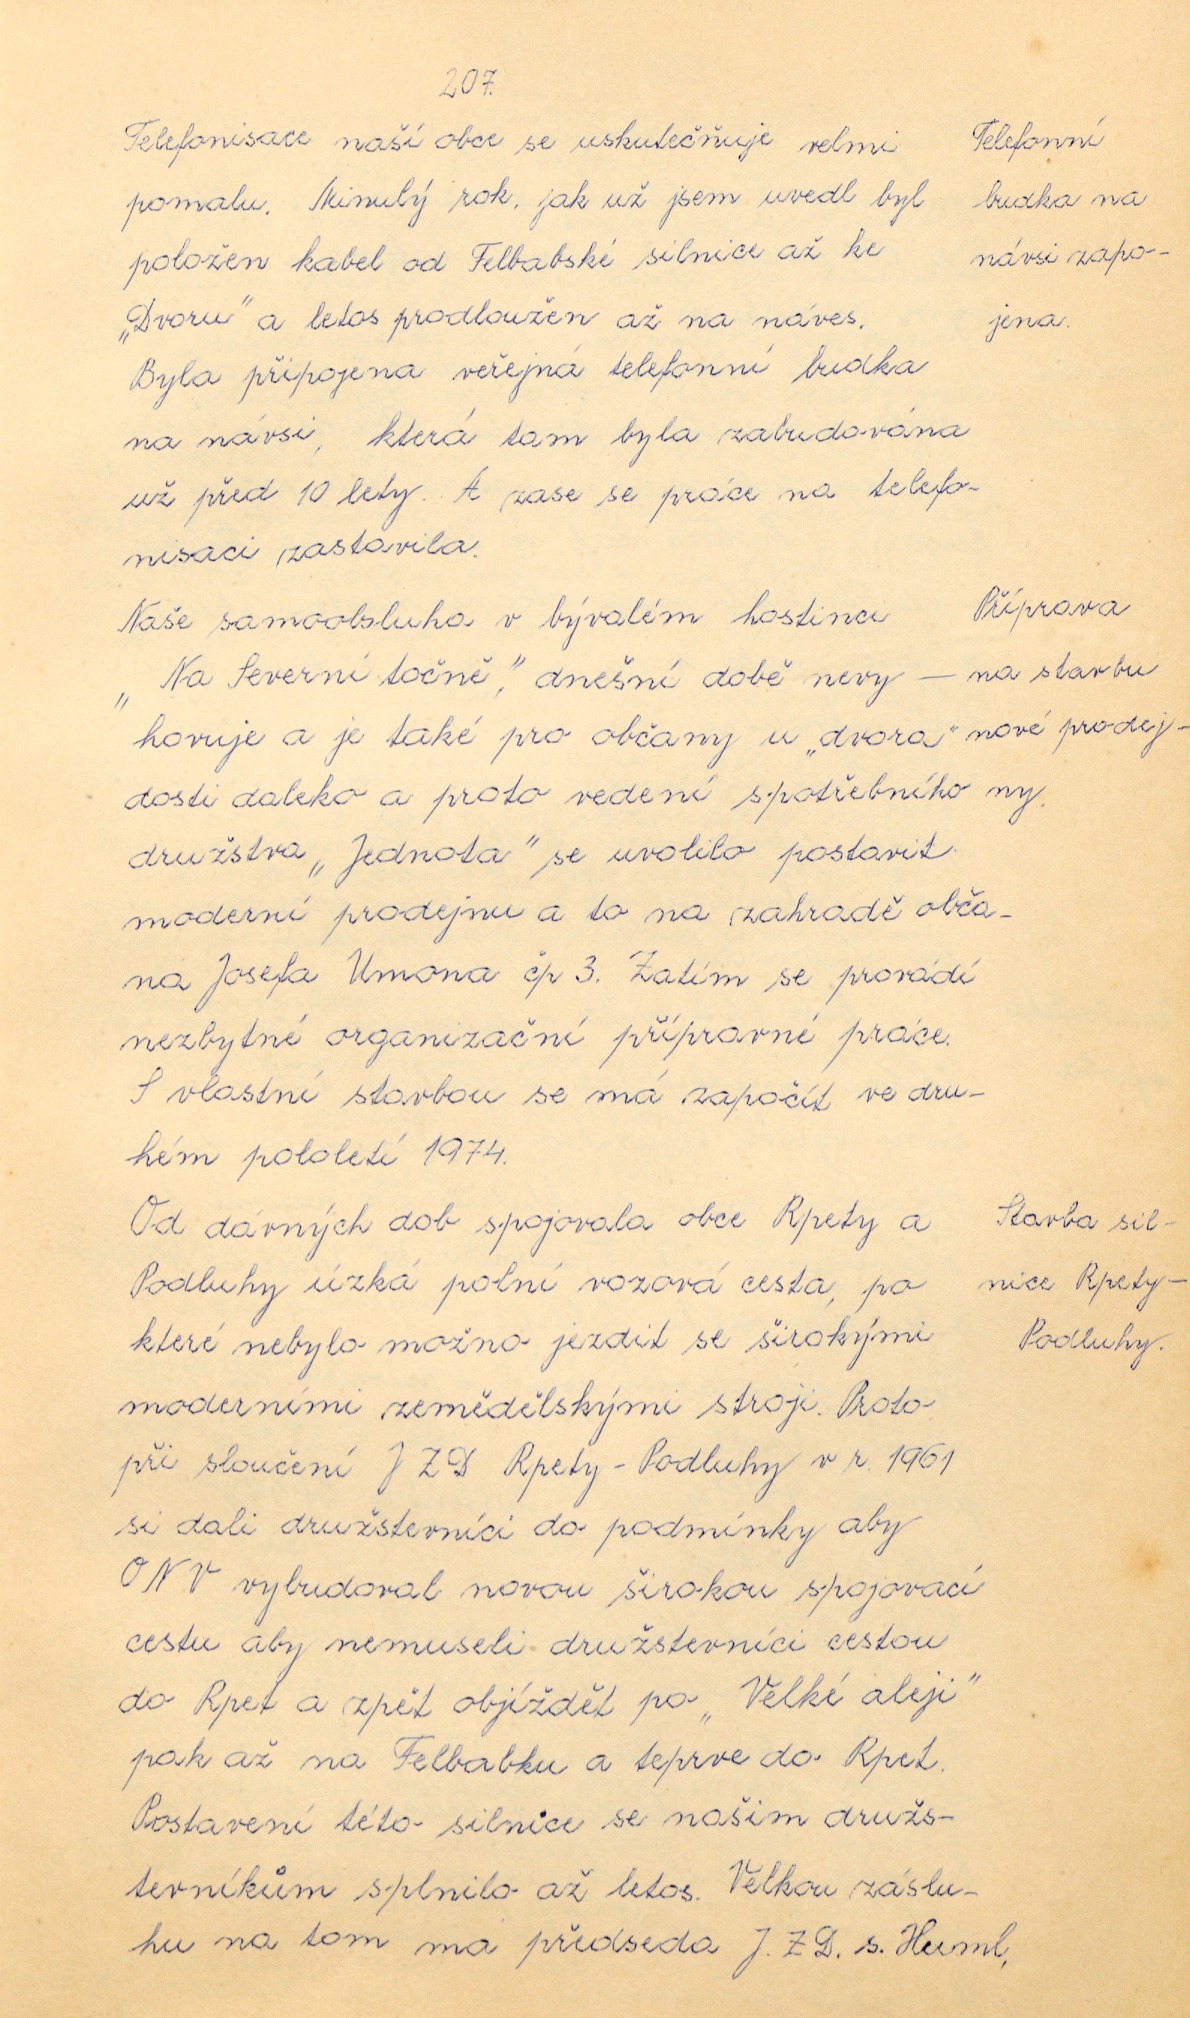 207.
Telefonisace naší obce se uskutečňuje velmi
pomalu. Minulý rok, jak už jsem uvedl byl
položen kabel od Felbabské silnice až ke
„Dvoru" a letos prodloužen až na náves.
Byla připojena veřejná telefonní budka
na návsi, která tam byla zabudována
už před 10 lety. A zase se práce na telefo-
nisaci zastavila.
Telefonní
budka na
návsi zapo-
jena.
Naše samoobsluha v bývalém hostinci
„Na Severní točně", dnešní době nevy-
hovuje a je také pro občany u „dvora"
dosti daleko a proto vedení spotřebního
družstva „Jednota" se uvolilo postavit
moderní prodejnu a to na zahradě obča-
na Josefa Umona čp 3. Zatím se provádí
nezbytné organizační přípravné práce.
S vlastní stavbou se má započít ve dru-
hém pololetí 1974.
Příprava
na stavbu
nové prodej-
ny.
Od dávných dob spojovala obce Rpety a
Podluhy úzká polní vozová cesta, po
které nebylo možno jezdit se širokými
moderními zemědělskými stroji. Proto
při sloučení JZD Rpety-Podluhy v r. 1961
si dali družstevníci do podmínky aby
ONV vybudoval novou širokou spojovací
cestu aby nemuseli družstevníci cestou
do Rpet a zpět objíždět po „Velké aleji"
pak až na Felbabku a teprve do Rpet.
Postavení této silnice se našim družs-
terníkům splnilo až letos. Velkou záslu-
hu na tom ma předseda J.Z.D. s. Huml,
Stavba sil-
nice Rpety-
Podluhy.